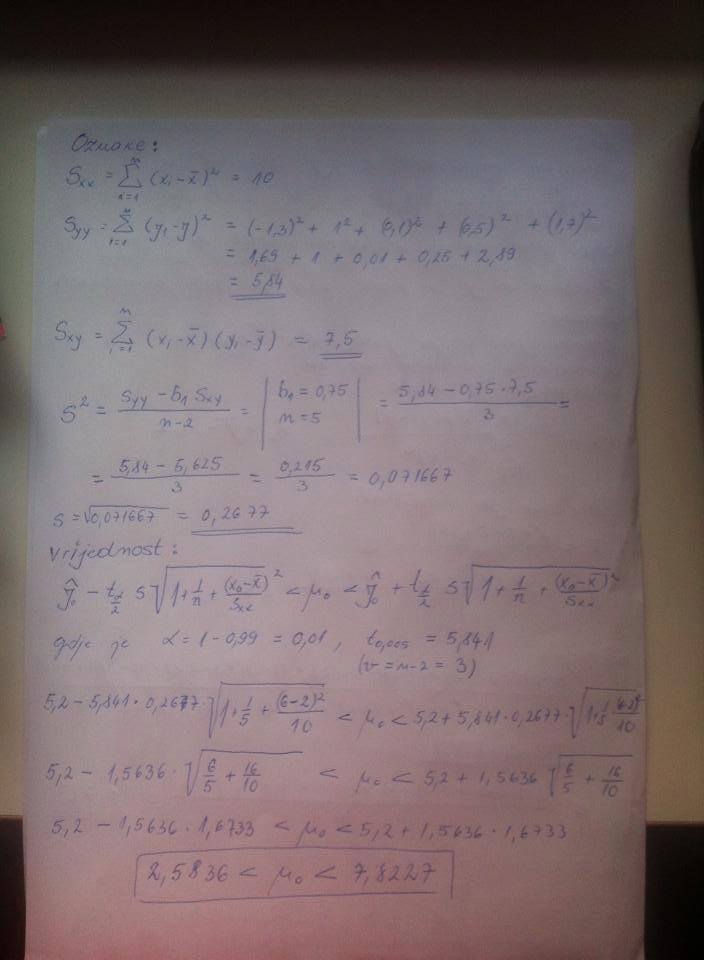 Oznake:
S_xx = Σ_{i=1}^{n} (x_i - x̄)² = 10
S_yy = Σ_{i=1}^{n} (y_i - ȳ)² = (-1,3)² + 1² + (0,1)² + (0,5)² + (1,7)²
= 1,69 + 1 + 0,01 + 0,25 + 2,89
= 5,84
S_xy = Σ_{i=1}^{n} (x_i - x̄)(y_i - ȳ) = 7,5
S² = (S_yy - b_1 S_xy)/(n-2) = | b_1 = 0,75 n = 5 | = (5,84 - 0,75·7,5)/3 =
= (5,84 - 5,625)/3 = 0,215/3 = 0,071667
s = √0,071667 = 0,2677
Vrijednost:
ŷ_0 - t_{α/2} s √(1 + 1/n + (x_0 - x̄)/S_xx)² < μ_0 < ŷ_0 + t_{α/2} s √(1 + 1/n + (x_0 - x̄)/S_xx)²
gdje je α = 1 - 0,99 = 0,01, t_{0,005} = 5,841
(v = n-2 = 3)
5,2 - 5,841·0,2677·√(1 + 1/5 + (6-2)²/10) < μ_0 < 5,2 + 5,841·0,2677·√(1 + 1/5 (6-2)²/10)
5,2 - 1,5636·√(6/5 + 16/10) < μ_0 < 5,2 + 1,5636 √(6/5 + 16/10)
5,2 - 1,5636·1,6733 < μ_0 < 5,2 + 1,5636·1,6733
2,5836 < μ_0 < 7,8227